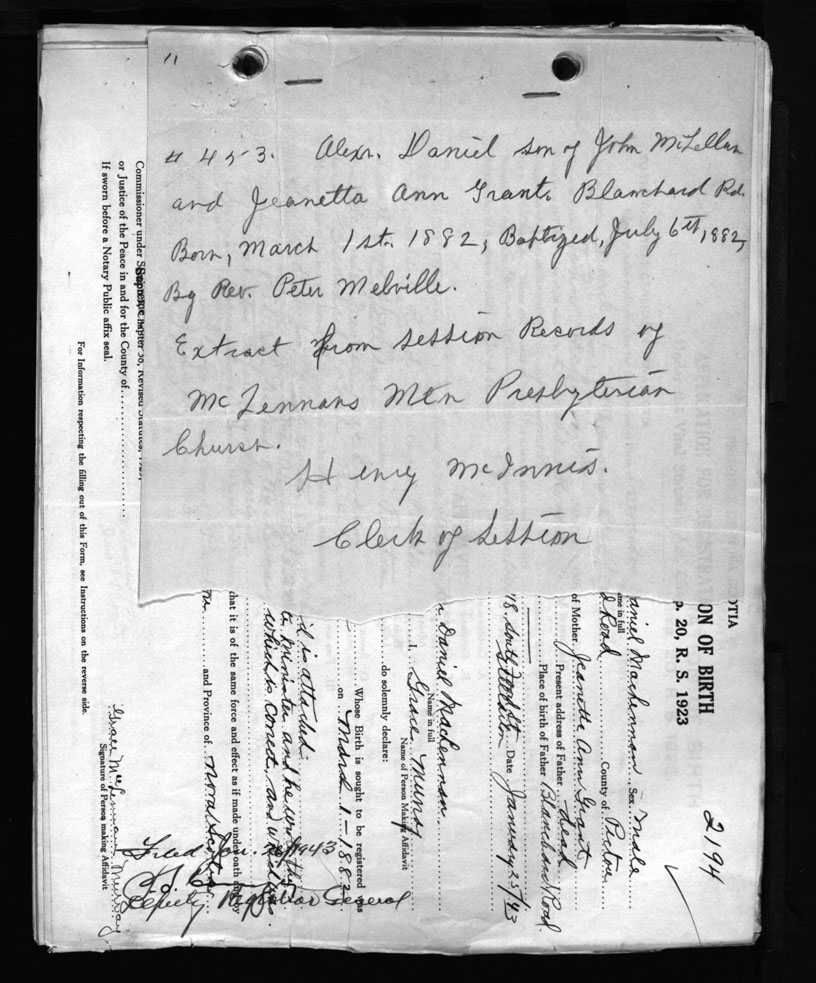 11
# 453. Alexr. Daniel son of John McLellan
and Jeanetta Ann Grant. Blanchard Rd.
Born, March 1st. 1882, Baptized, July 6th, 1882,
By Rev. Peter Melville.
Extract from Session Records of
McLennans Mtn Presbyterian
Church.
Henry McInnis.
Clerk of Session
OTIA
ON OF BIRTH
p. 20, R. S. 1923
2194
aniel MacLennan Sex Male
me in full
d Road County of Pictou
of Mother Jeanette Ann Grant
Present address of Father dead
Place of birth of Father Blanchard Road
Date January 25/43
Stellarton
Daniel MacLennan
Name in full
I, Grace Murray
Name of Person Making Affidavit
do solemnly declare:
Whose Birth is sought to be registered was
on March 1 - 1882
d is attached.
te minister and he wrote this
which is correct, and
that it is of the same force and effect as if made under oath
and Province of Nova Scotia
Filed Jan. 1943
Deputy Registrar General
Grace MacLennan Murray
Signature of Person making Affidavit
Commissioner under
Chapter 50, Revised Statutes, 1923,
or Justice of the Peace in and for the County of
If sworn before a Notary Public affix seal.
For Information respecting the filling out of this Form, see Instructions on the reverse side.